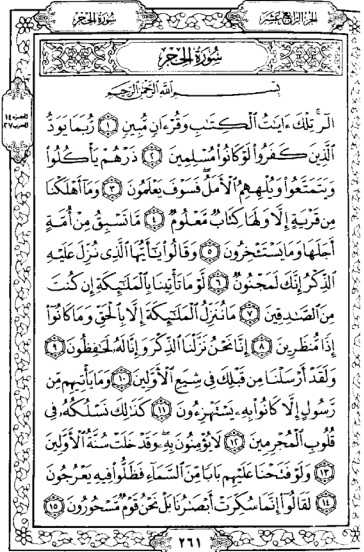 سُورَةُ الحِجْرِ
الجزء الرابع عشر
سُورَةُ الحِجْرِ
بِسْمِ اللَّهِ الرَّحْمَٰنِ الرَّحِيمِ
الجزء ١٤
الحزب ٢٧
الٓر ۚ تِلْكَ ءَايَٰتُ ٱلْكِتَٰبِ وَقُرْءَانٍ مُّبِينٍ ١ رُّبَمَا يَوَدُّ
ٱلَّذِينَ كَفَرُوا۟ لَوْ كَانُوا۟ مُسْلِمِينَ ٢ ذَرْهُمْ يَأْكُلُوا۟
وَيَتَمَتَّعُوا۟ وَيُلْهِهِمُ ٱلْأَمَلُ ۖ فَسَوْفَ يَعْلَمُونَ ٣ وَمَآ أَهْلَكْنَا
مِن قَرْيَةٍ إِلَّا وَلَهَا كِتَابٌ مَّعْلُومٌ ٤ مَّا تَسْبِقُ مِنْ أُمَّةٍ
أَجَلَهَا وَمَا يَسْتَـْٔخِرُونَ ٥ وَقَالُوا۟ يَٰٓأَيُّهَا ٱلَّذِى نُزِّلَ عَلَيْهِ
ٱلذِّكْرُ إِنَّكَ لَمَجْنُونٌ ٦ لَّوْ مَا تَأْتِينَا بِٱلْمَلَٰٓئِكَةِ إِن كُنتَ
مِنَ ٱلصَّٰدِقِينَ ٧ مَا نُنَزِّلُ ٱلْمَلَٰٓئِكَةَ إِلَّا بِٱلْحَقِّ وَمَا كَانُوٓا۟
إِذًا مُّنظَرِينَ ٨ إِنَّا نَحْنُ نَزَّلْنَا ٱلذِّكْرَ وَإِنَّا لَهُۥ لَحَٰفِظُونَ ٩
وَلَقَدْ أَرْسَلْنَا مِن قَبْلِكَ فِى شِيَعِ ٱلْأَوَّلِينَ ١٠ وَمَا يَأْتِيهِم مِّن
رَّسُولٍ إِلَّا كَانُوا۟ بِهِۦ يَسْتَهْزِءُونَ ١١ كَذَٰلِكَ نَسْلُكُهُۥ فِى
قُلُوبِ ٱلْمُجْرِمِينَ ١٢ لَا يُؤْمِنُونَ بِهِۦ ۖ وَقَدْ خَلَتْ سُنَّةُ ٱلْأَوَّلِينَ
١٣ وَلَوْ فَتَحْنَا عَلَيْهِم بَابًا مِّنَ ٱلسَّمَآءِ فَظَلُّوا۟ فِيهِ يَعْرُجُونَ
١٤ لَقَالُوٓا۟ إِنَّمَا سُكِّرَتْ أَبْصَٰرُنَا بَلْ نَحْنُ قَوْمٌ مَّسْحُورُونَ ١٥
٢٦١